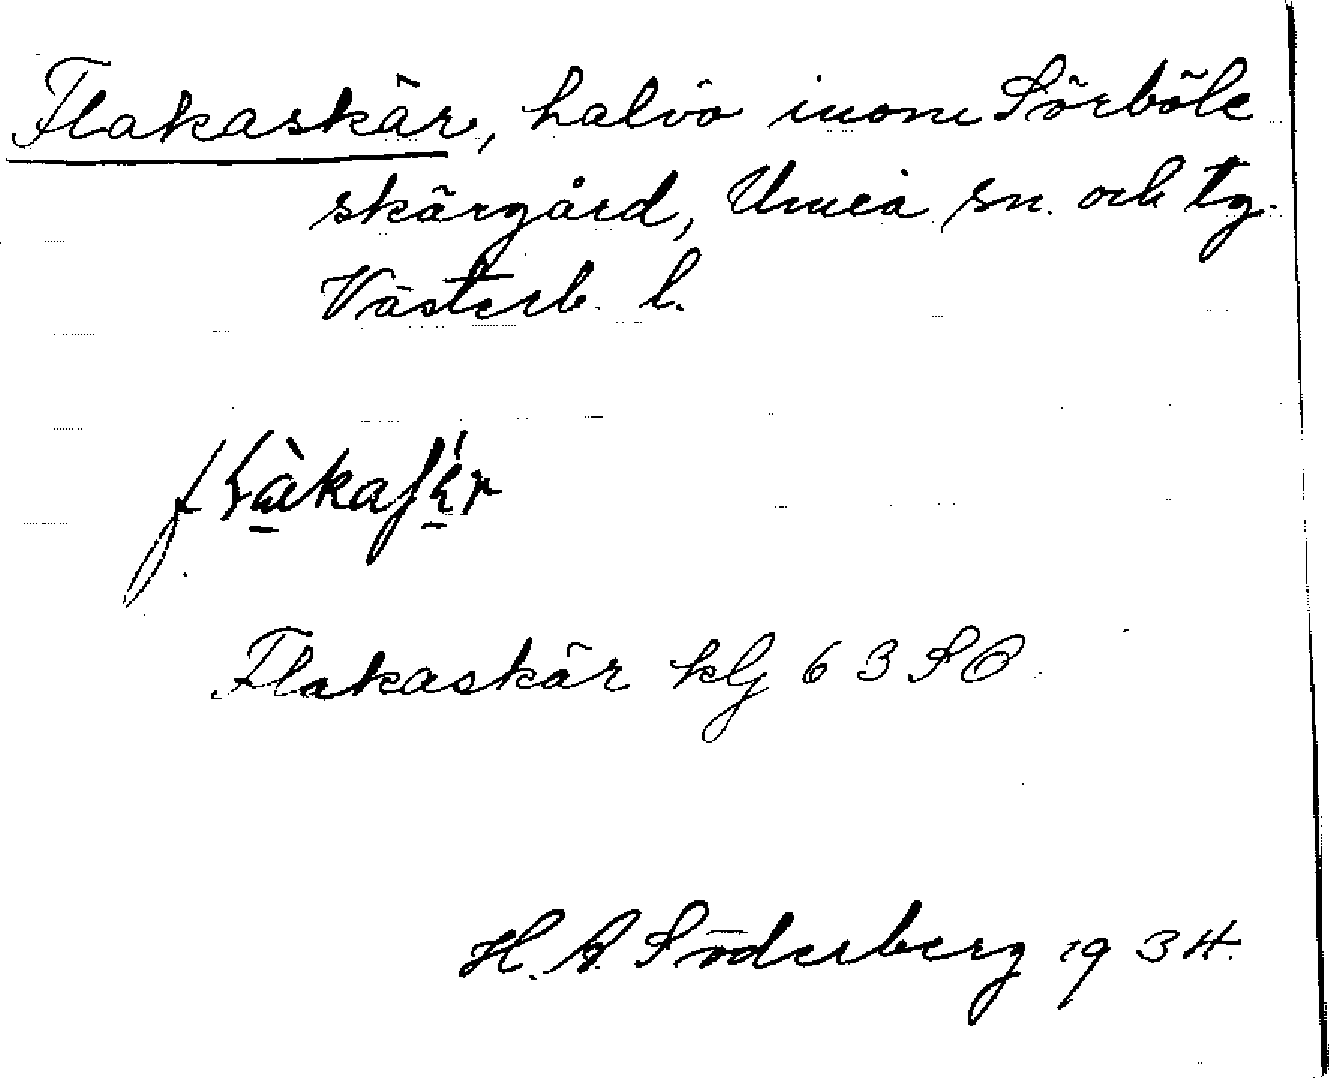 Flakaskär, halvö inom Sörböle
skärgård, Umeå sn. och tg.
Västerb. l.
Flakaskär kbl 63 SO
H. A. Söderberg 1934.